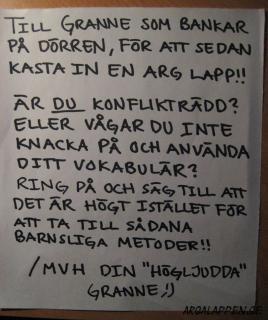 TILL GRANNE SOM BANKAR
PÅ DÖRREN, FÖR ATT SEDAN
KASTA IN EN ARG LAPP!!
ÄR DU KONFLIKTRÄDD?
ELLER VÅGAR DU INTE
KNACKA PÅ OCH ANVÄNDA
DITT VOKABULÄR?
RING PÅ OCH SÄG TILL ATT
DET ÄR HÖGT ISTÄLLET FÖR
ATT TA TILL SÅDANA
BARNSLIGA METODER!!
/MVH DIN "HÖGLJUDDA"
GRANNE ;)
ARGALAPPEN.SE